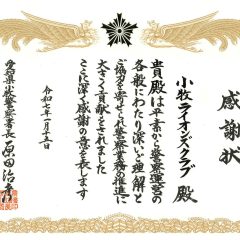 感謝状
小牧ライオンズクラブ 殿
貴殿は平素から警察運営の
各般にわたり深いご理解と
ご協力を寄せられ警察業務の推進に
大きく貢献されました
ここに深く感謝の意を表します
令和七年一月十五日
愛知県小牧警察署長 石田治彦